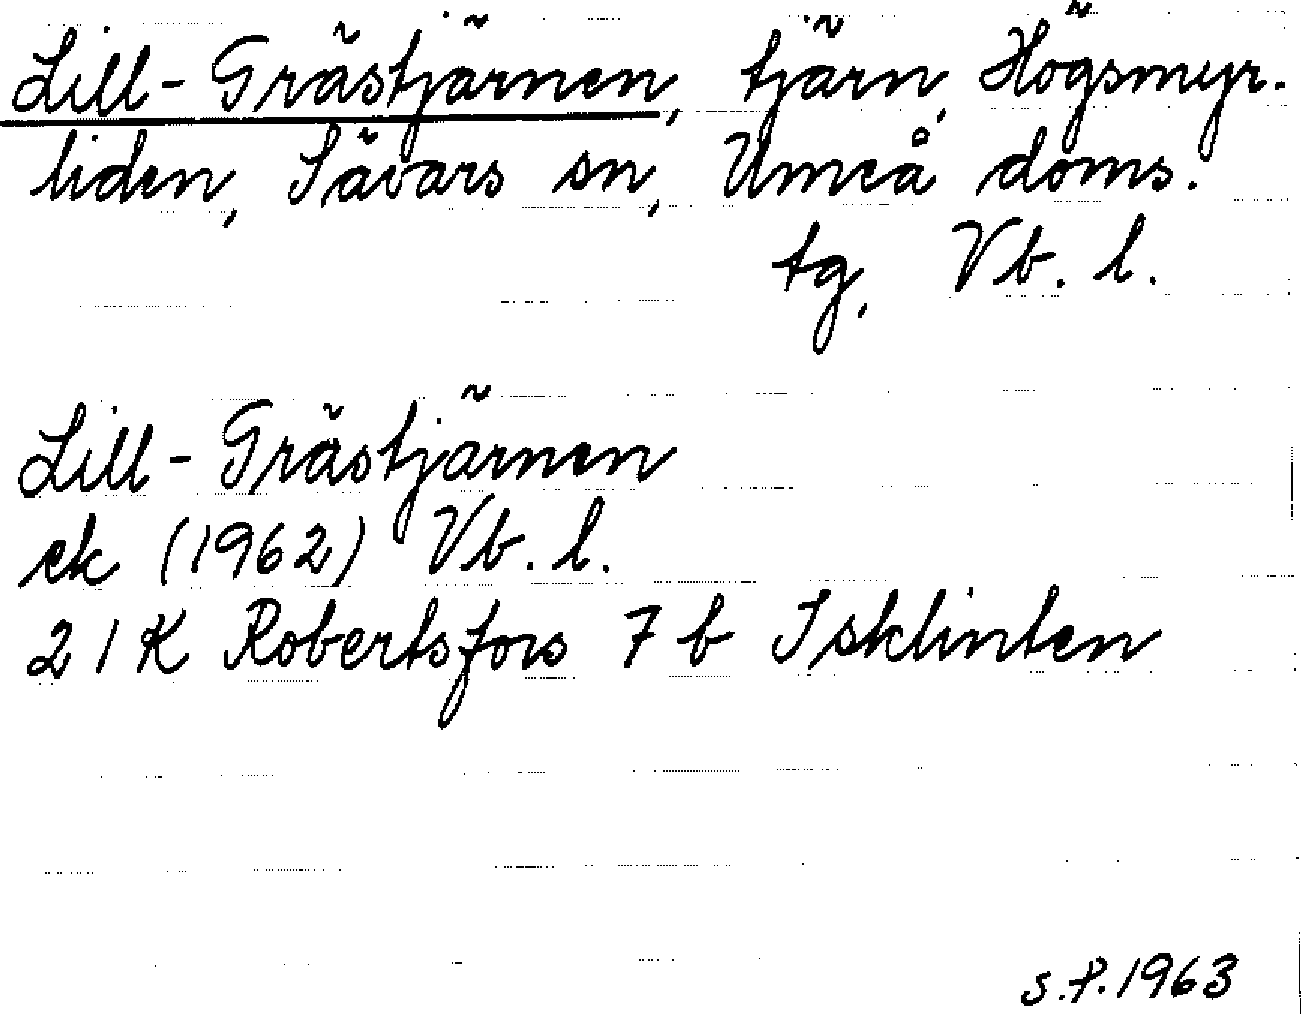 Lill-Grästjärnen, tjärn, Högsmyr-
liden, Sävars sn, Umeå doms.
tg, Vb. l.
Lill-Grästjärnen
ek (1962) Vb. l.
21K Robertsfors 7 b Isklinten
s.f. 1963